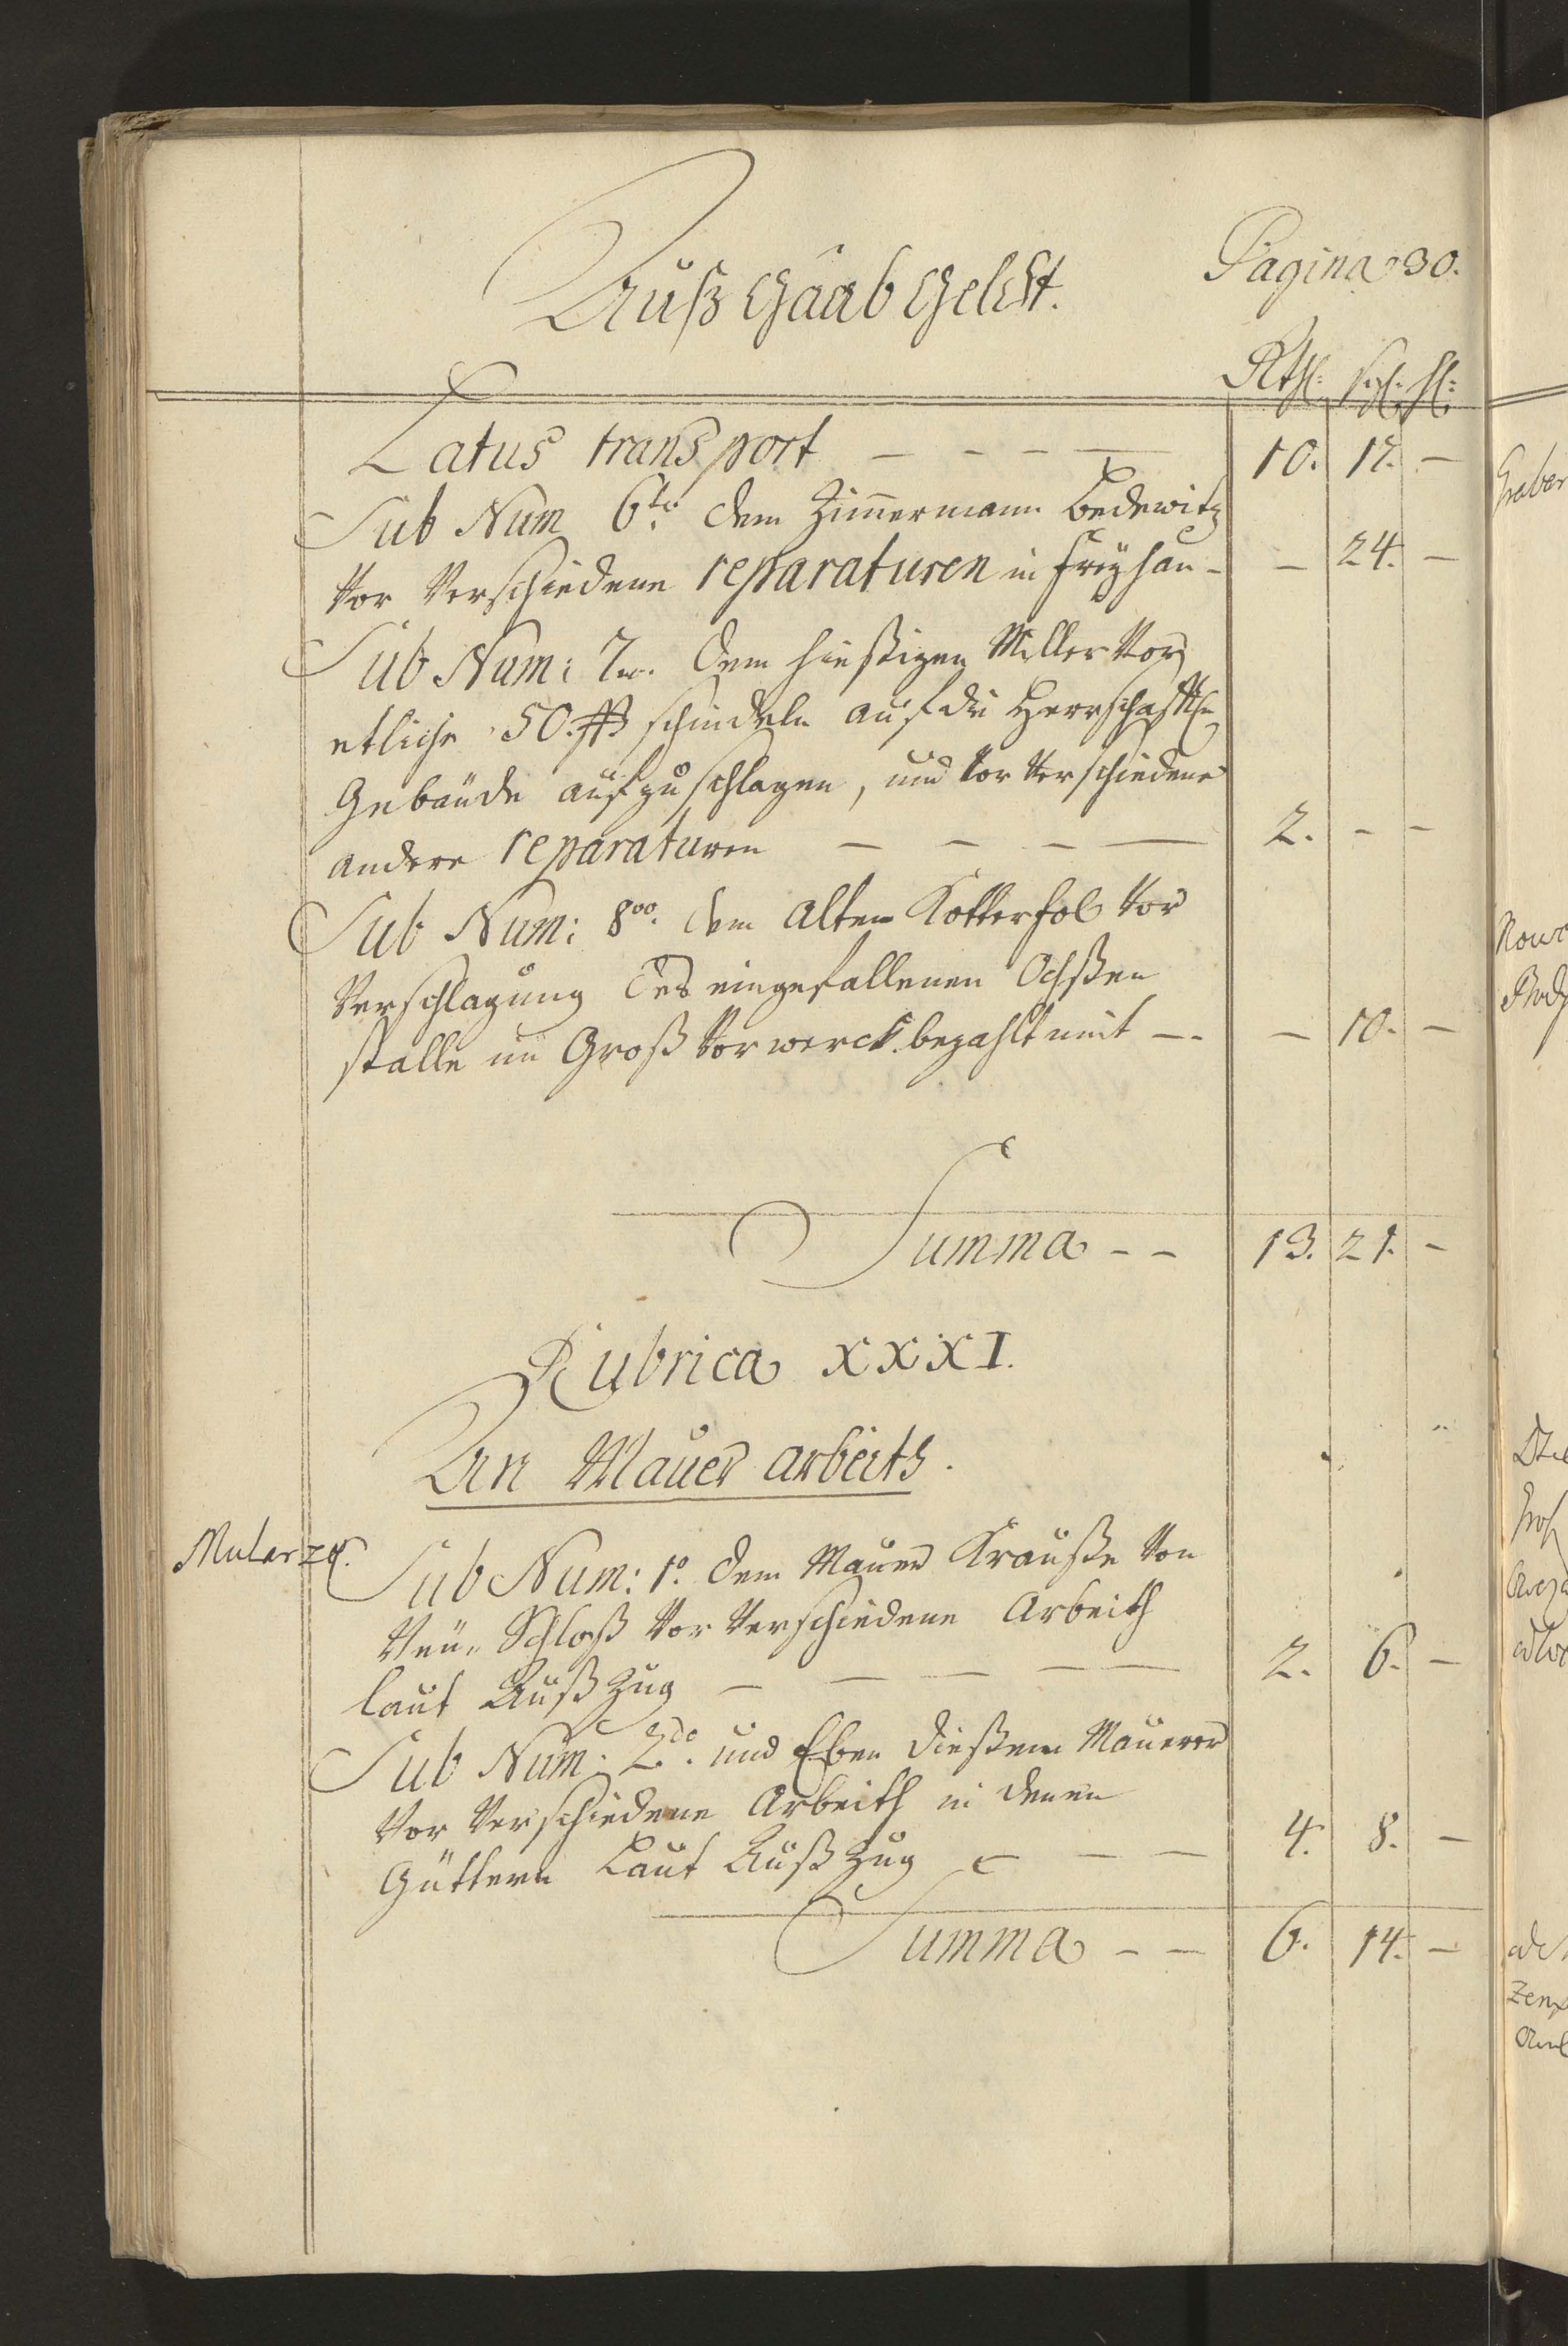 Pagina 30.
Außgaab Geldt.
Rthl: sgl: hl:
Latus transport – – – — 10. 17. –
Sub Num 6to dem Zimmermann Bedewitz
vor verschiedene reparaturen in Freyhan – – 24. –
Sub Num: 7mo. dem hießigen Müller vor
etliche 50. ß schindeln auf die Herrschafftl:
Gebäude aufzuschlagen, und vor verschiedene
andere reparaturen – – – — 2. – –
Sub Num: 8vo. dem alten Kotterfol vor
Verschlagung des eingefallenen Ochßen
stalle im Groß Vorwerck. bezahlt mit –. – 10. –
Summa – – 13. 21. –
Rubrica XXXI.
An Mauer arbeith.
Mularzy.
Sub Num: 1o. dem Maurer Krauße von
Neu-Schloß vor verschiedene Arbeith
laut Außzug – — — — — 2. 6. –
Sub Num: 2do. und Eben dießem Maurer
vor verschiedene Arbeith in denen
Güttern Laut Außzug – – — 4. 8. –
Summa – – 6. 14. –
Graber